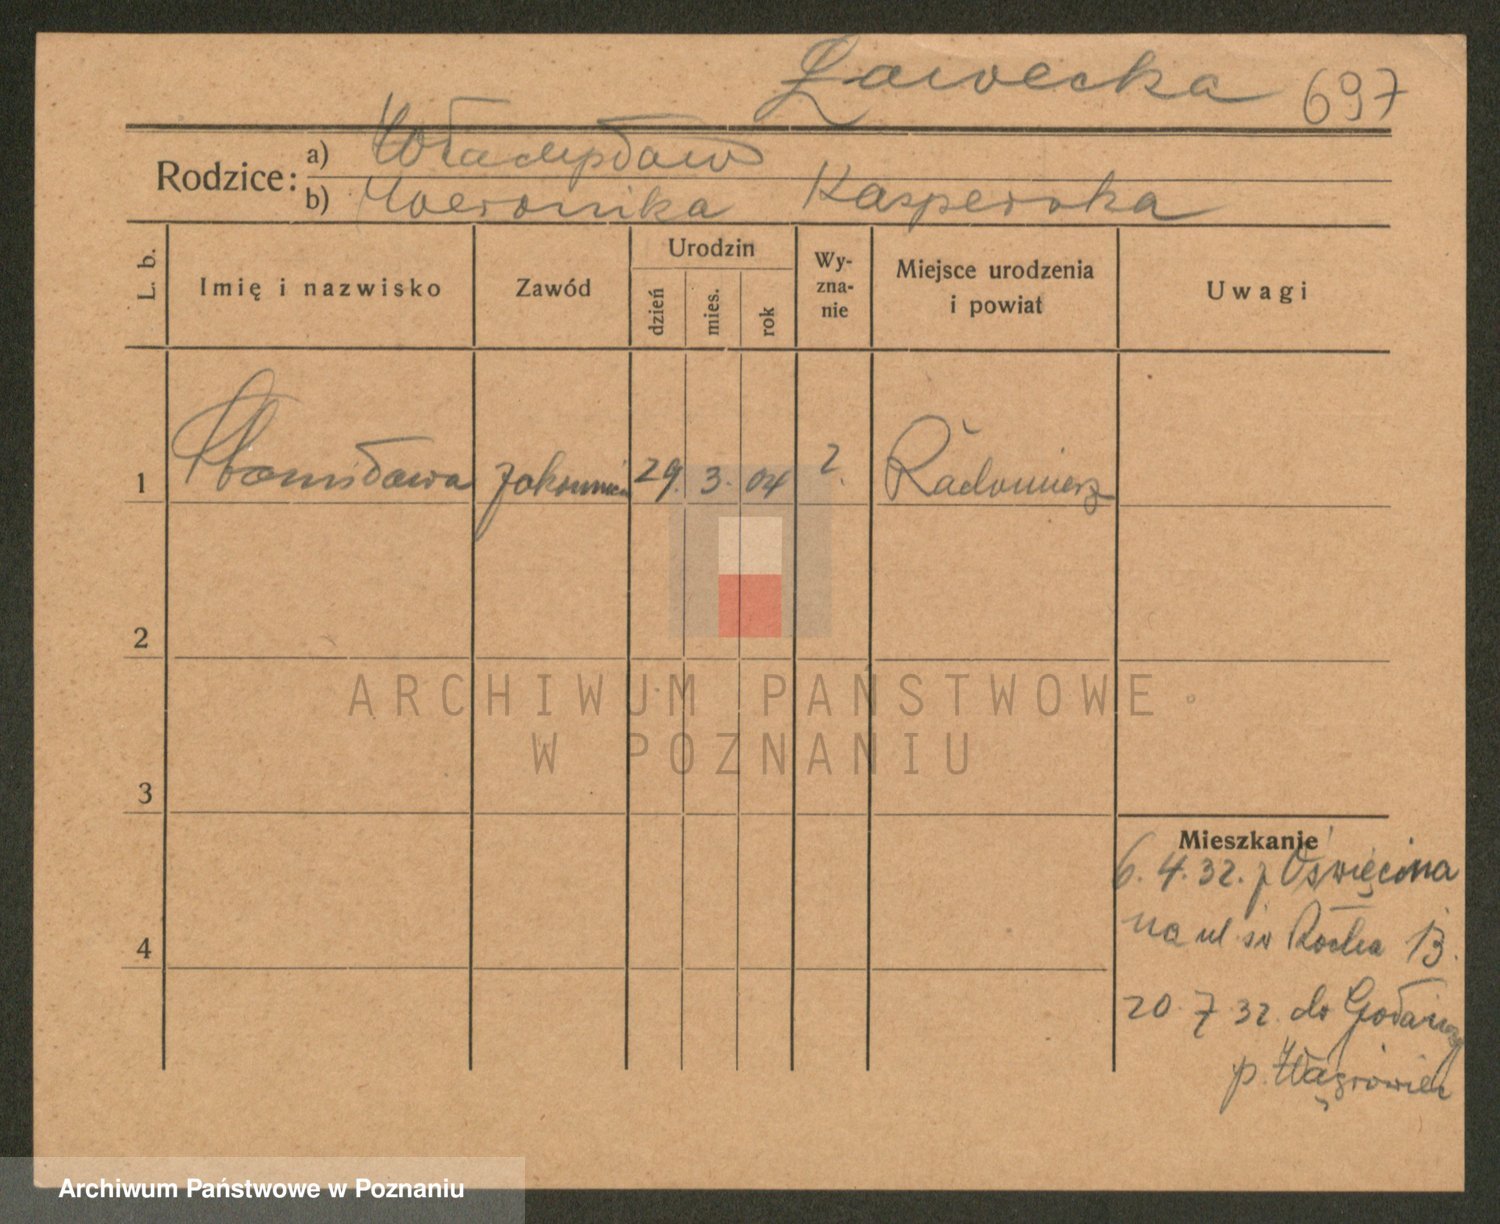 Ławecka 697
Rodzice: a) Władysław
b) Weronika Kasperska
L. b.
Imię i nazwisko
Zawód
Urodzin
dzień
mies.
rok
Wy-
zna-
nie
Miejsce urodzenia
i powiat
Uwagi
1 Stanisława zakonnica 29. 3. 04 2. Radomierz
2
3
4
Mieszkanie
6.4.32. z Oświęcima
na ul św Rocha 13.
20.7.32. do
p. Wągrowiec
ARCHIWUM PAŃSTWOWE
W POZNANIU
Archiwum Państwowe w Poznaniu